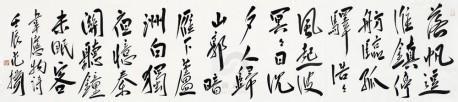 落帆逗
淮鎮停
舫臨孤
驛浩々
風起波
冥々日沉
夕人歸
山郭暗
雁下蘆
洲白獨
夜憶秦
關聽鐘
未眠客
韋應物詩
壬辰